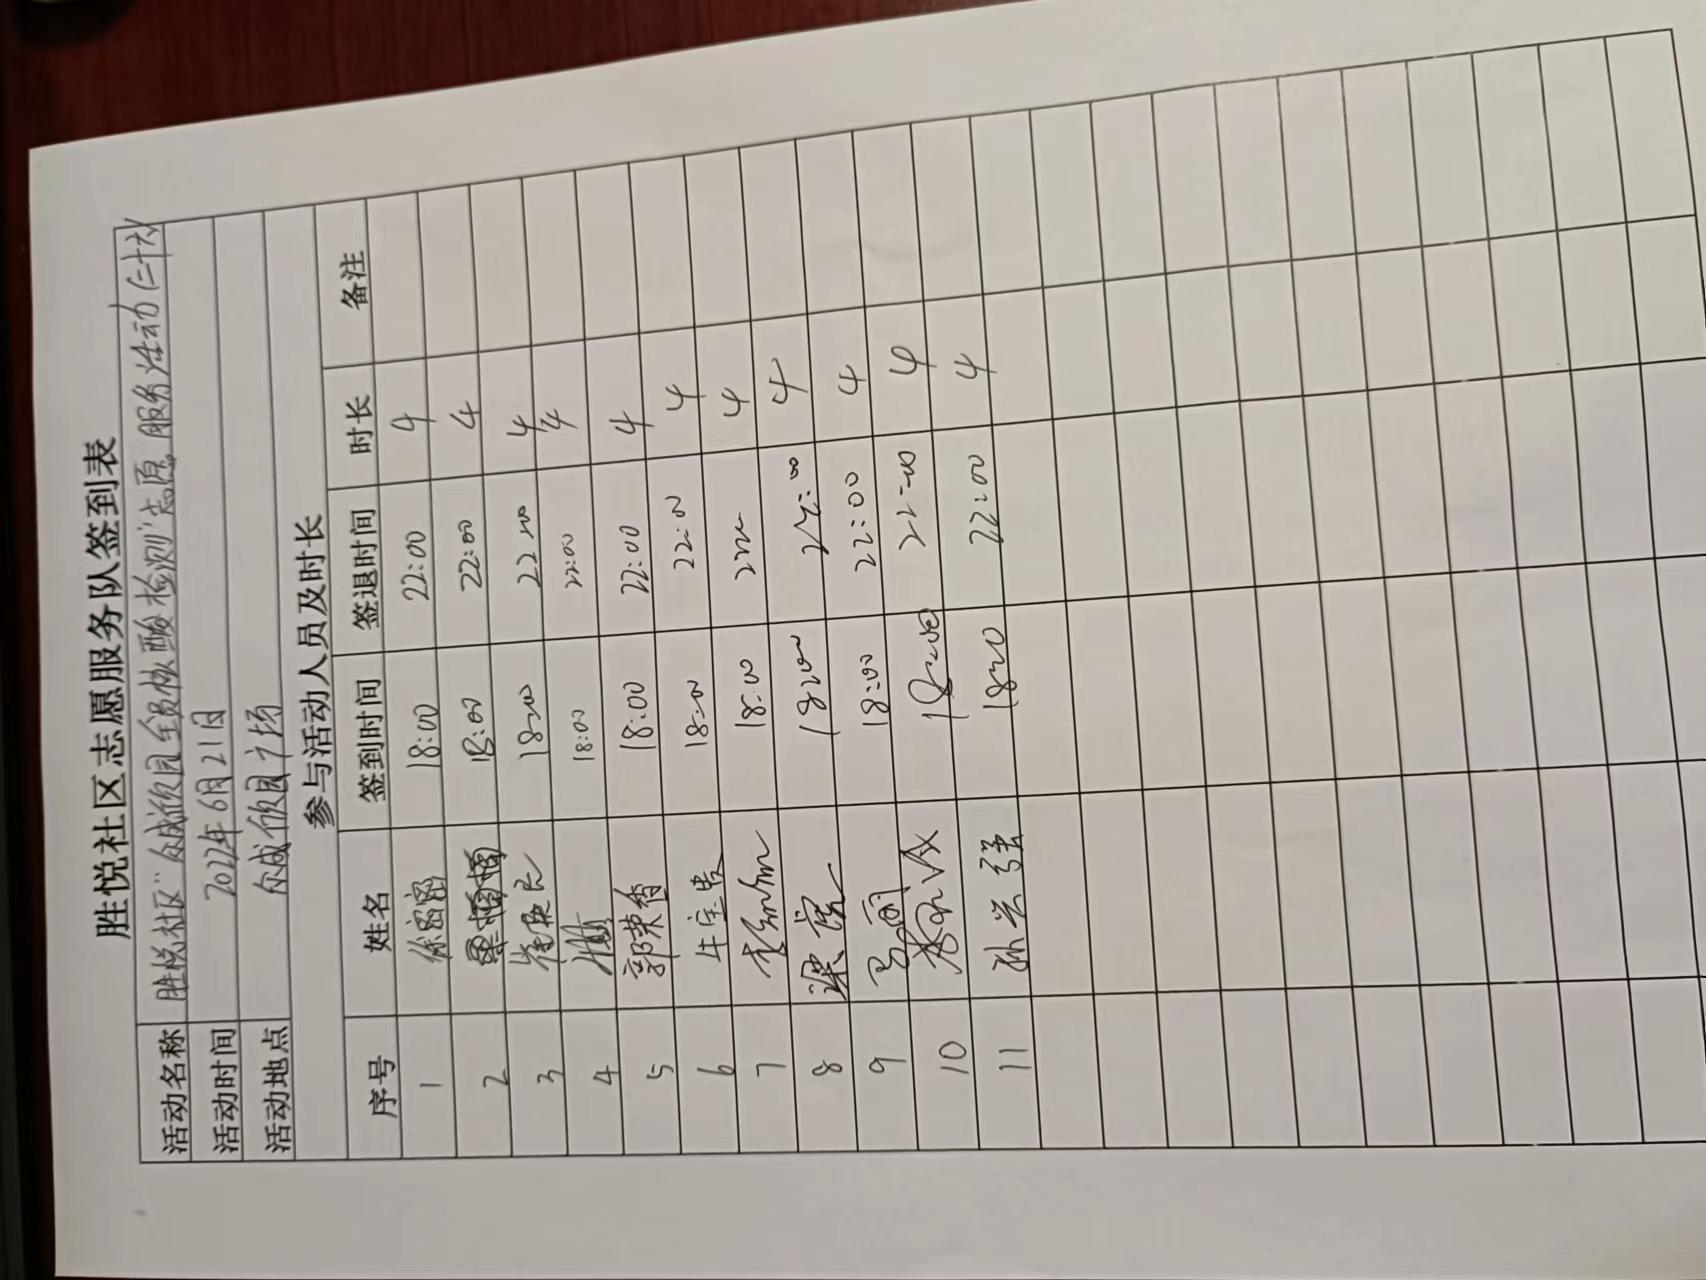 胜悦社区志愿服务队签到表
活动名称 胜悦社区"众成欣园全员核酸检测"志愿服务活动(二十六)
活动时间 2022年6月21日
活动地点 众成欣园广场
参与活动人员及时长
序号 姓名 签到时间 签退时间 时长 备注
1 徐密密 18:00 22:00 4
2 18:00 22:00 4
3 18:00 22:00 4
4 18:00 22:00 4
5 郭荣香 18:00 22:00 4
6 牛宝贵 18:00 22:00 4
7 18:00 4
8 梁 18:00 22:00 4
9 马丽 18:00 22:00 4
10 18:00 22:00 4
11 孙兴强 18:00 22:00 4